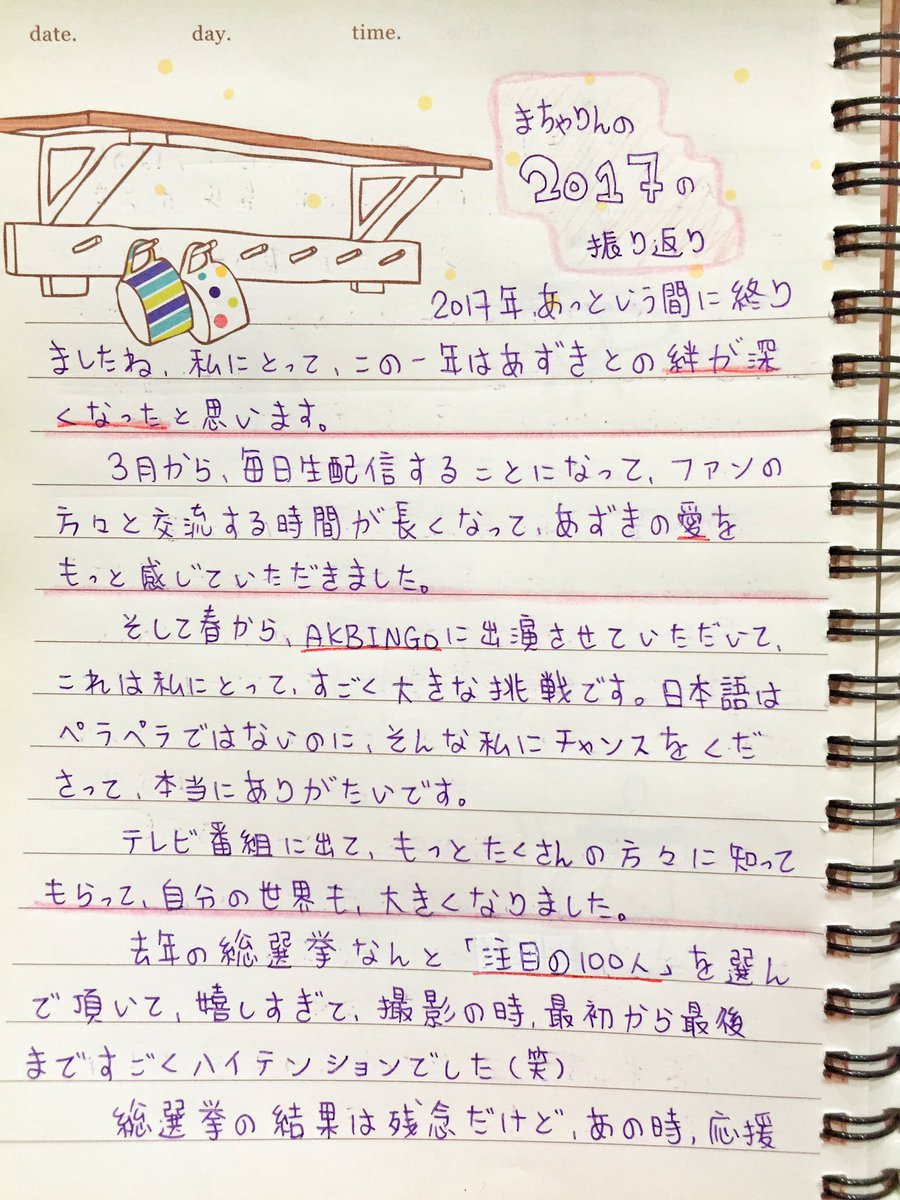 date. day. time.
まちゃりんの
2017の
振り返り
2017年、あっという間に終り
ましたね、私にとって、この一年はあずきとの絆が深
くなったと思います。
3月から、毎日生配信することになって、ファンの
方々と交流する時間が長くなって、あずきの愛を
もっと感じていただきました。
そして春から、AKBINGOに出演させていただいて、
これは私にとって、すごく大きな挑戦です。日本語は
ペラペラではないのに、そんな私にチャンスをくだ
さって、本当にありがたいです。
テレビ番組に出て、もっとたくさんの方々に知って
もらって、自分の世界も、大きくなりました。
去年の総選挙なんと「注目の100人」を選ん
で頂いて、嬉しすぎて、撮影の時、最初から最後
まですごくハイテンションでした(笑)
総選挙の結果は残念だけど、あの時、応援